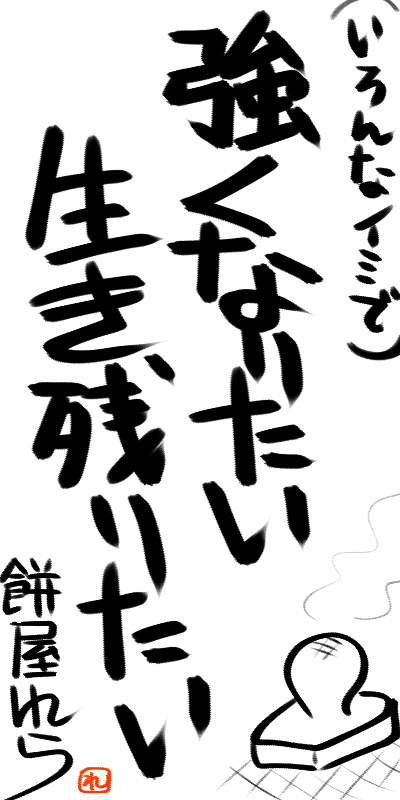 (いろんなイミで)
強くなりたい
生き残りたい
餅屋れら
れ